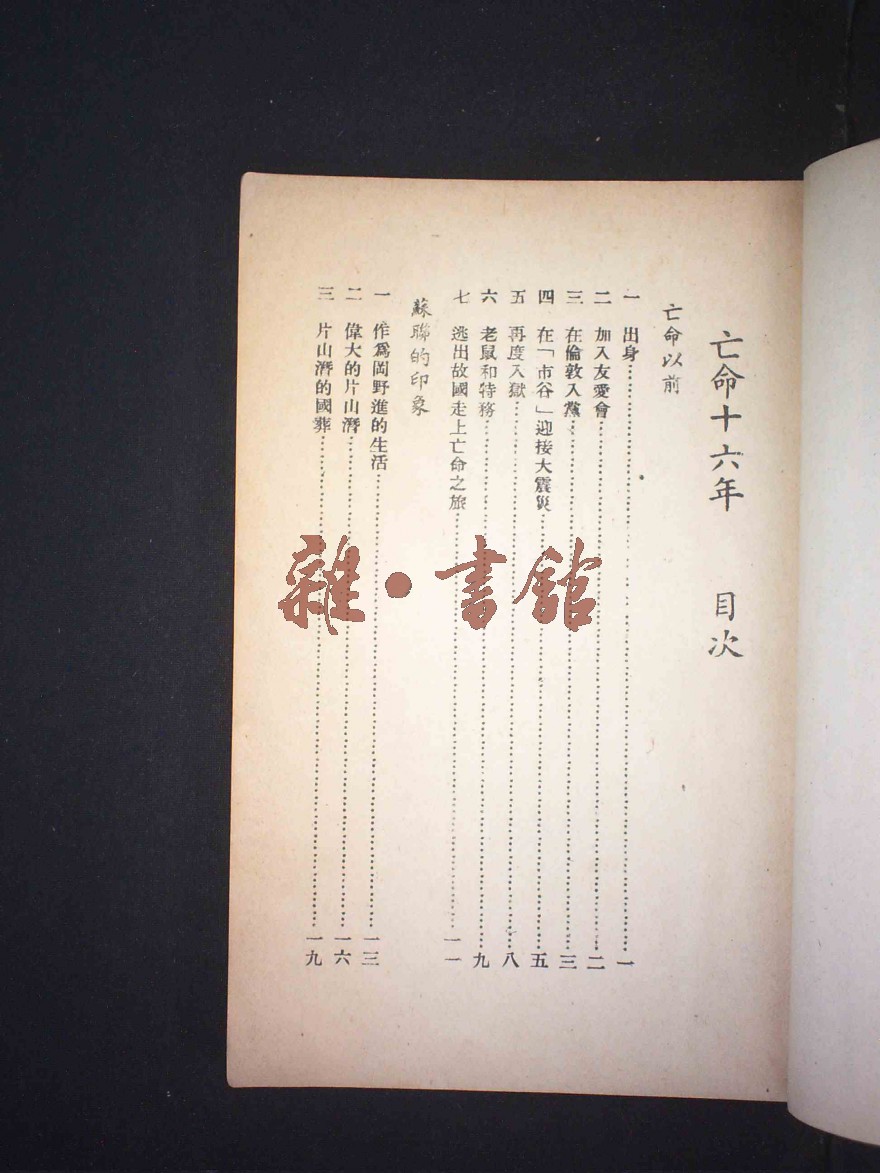 亡命十六年　目次
亡命以前
一　出身……………一
二　加入友愛會……………二
三　在倫敦入黨……………三
四　在「市谷」迎接大震災……………五
五　再度入獄……………八
六　老鼠和特務……………九
七　逃出故國走上亡命之旅……………一一
蘇聯的印象
一　作爲岡野進的生活……………一三
二　偉大的片山潛……………一六
三　片山潛的國葬……………一九
雜·書館